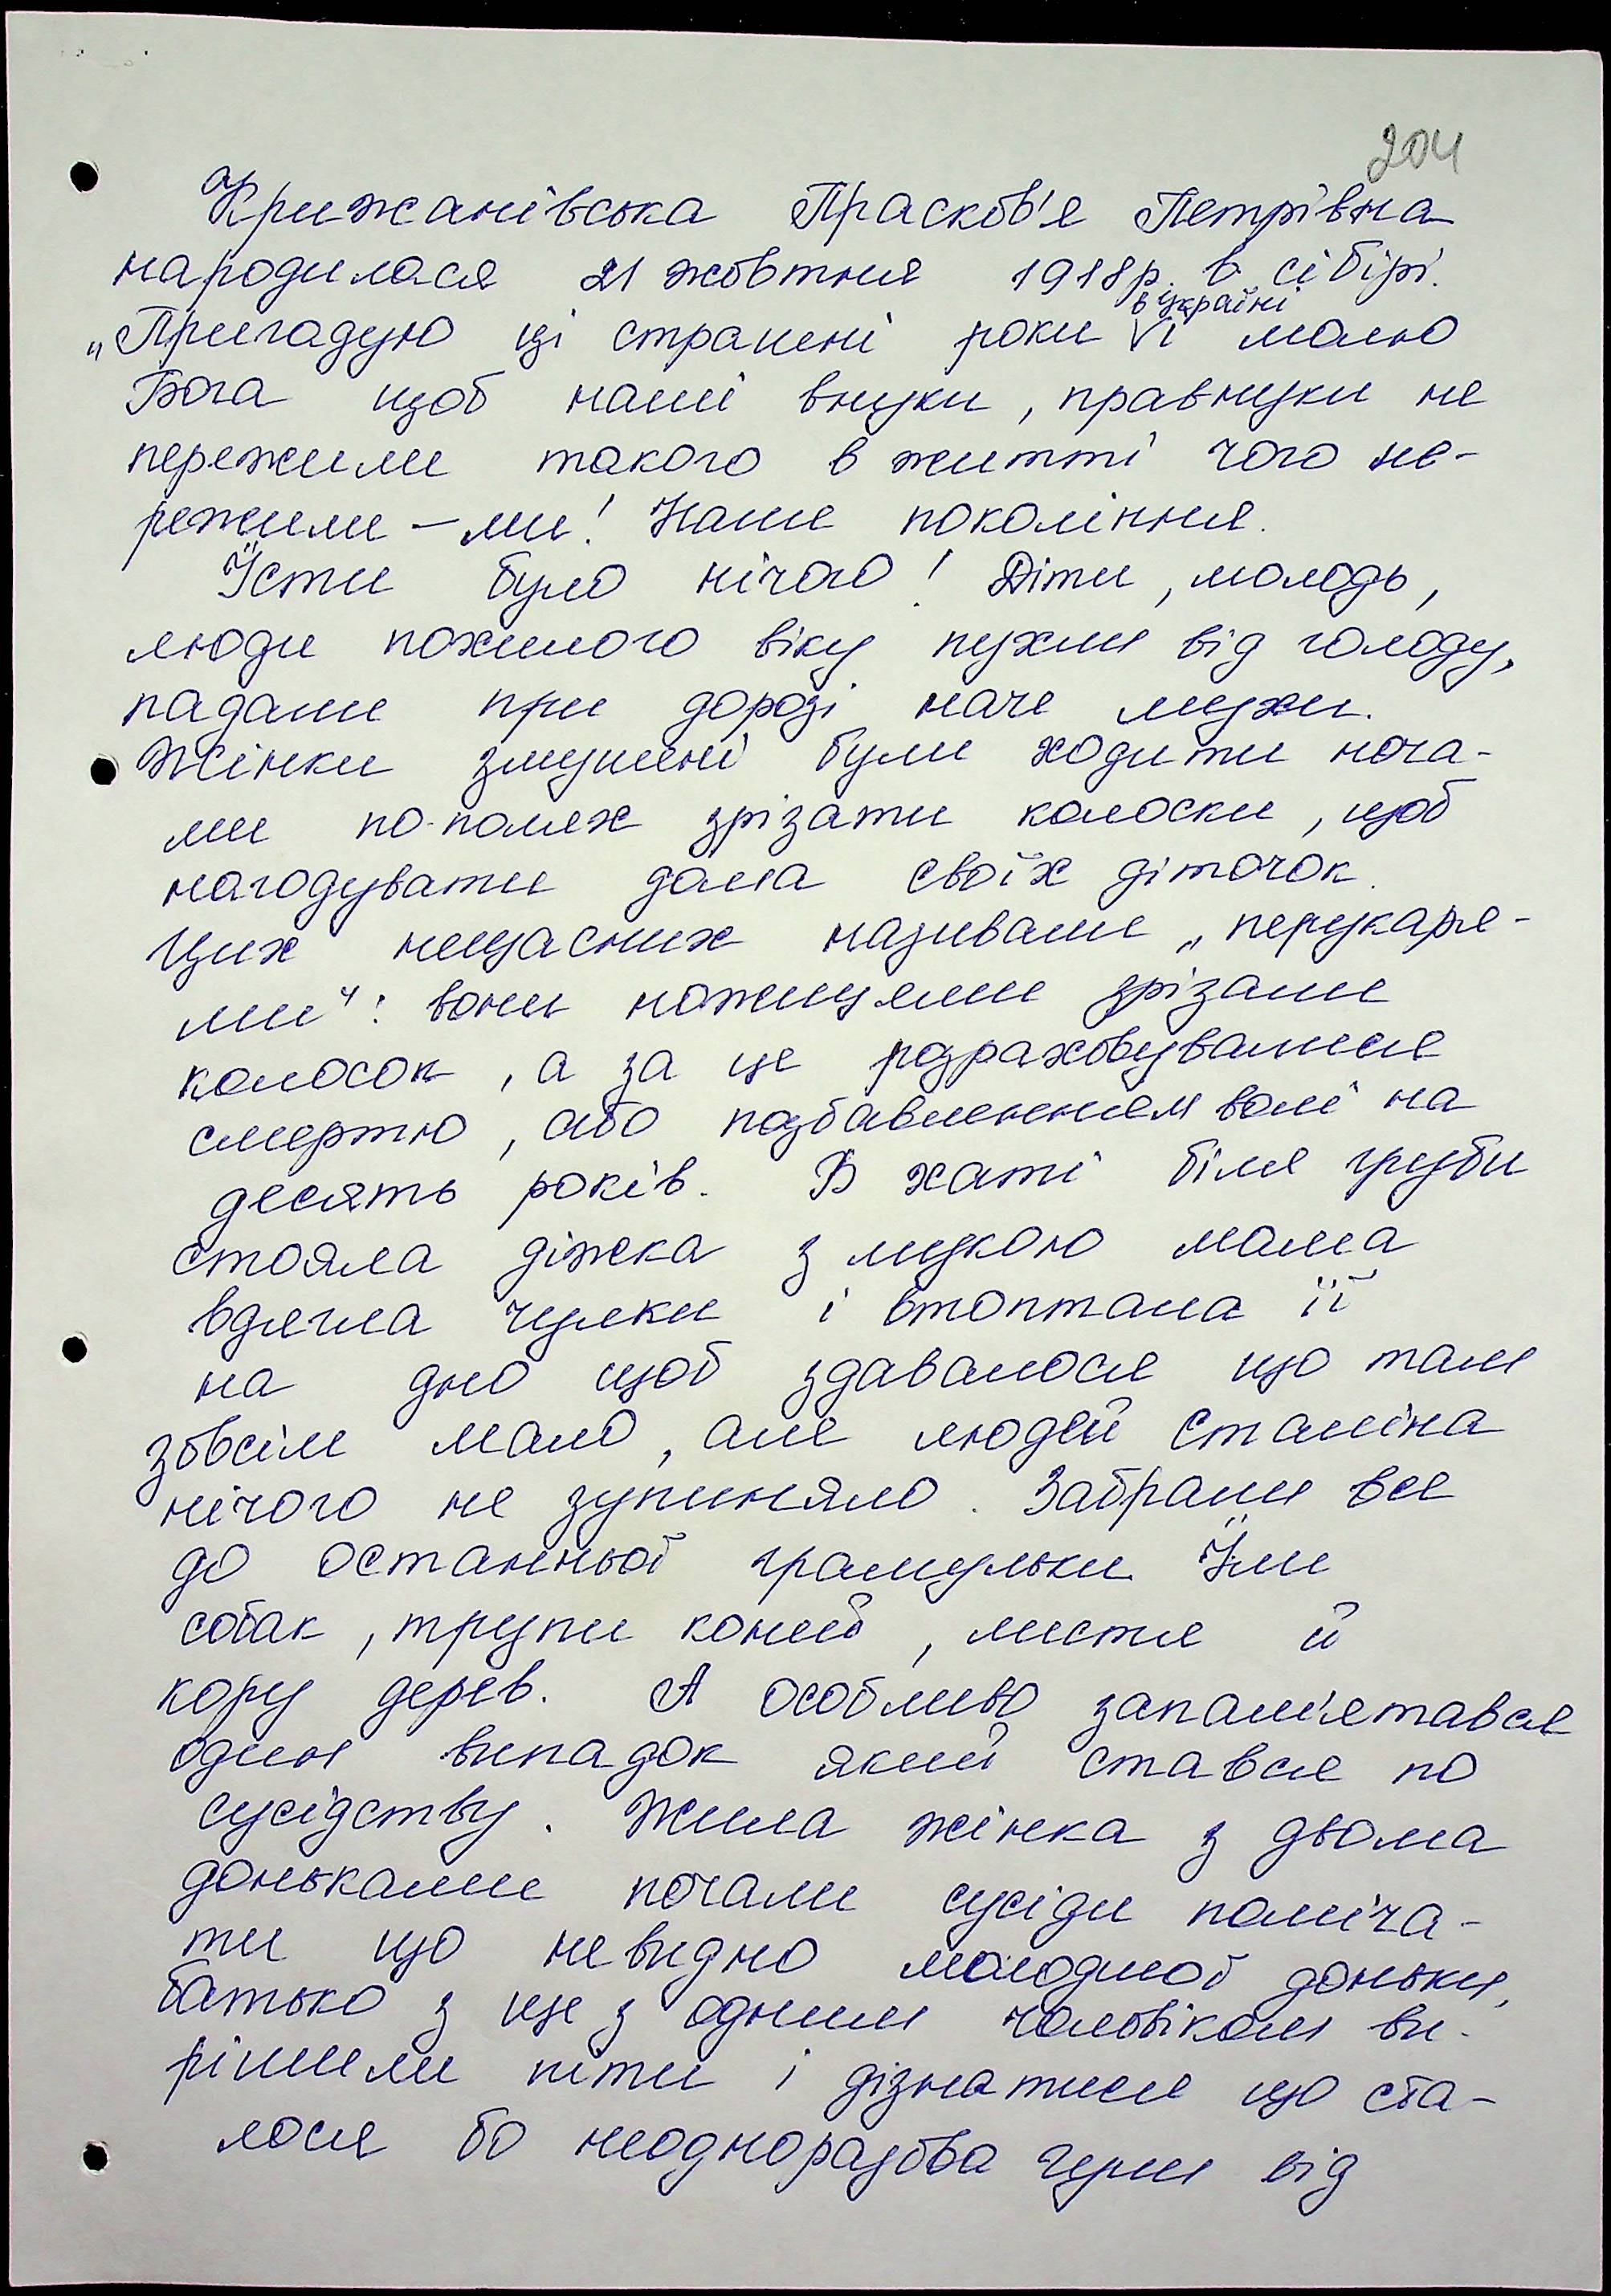 204
Крижанівська Прасков'я Петрівна
народилася 21 жовтня 1918р. в сібірі.
в Україні
„Пригадую ці страшні роки V і молю
Бога щоб наші внуки, правнуки не
пережили такого в житті чого пе-
режили – ми! Наше покоління.
Їсти було нічого! Діти, молодь,
люди похилого віку пухли від голоду,
падали при дорозі наче мухи.
Жінки змушені були ходити ноча-
ми по-полях зрізати колоски, щоб
нагодувати дома своїх діточок.
Цих нещасних називали „перукаря-
ми": вони ножицями зрізали
колосок, а за це розраховувалися
смертю, або позбавленням волі на
десять років. В хаті біля груби
стояла діжка з мукою мама
вдягла чулки і втоптала її
на дно щоб здавалося що там
зовсім мало, але людей Сталіна
нічого не зупиняло. Забрали все
до останньої грамульки. Їли
собак, трупи коней, листя й
кору дерев. А особливо запам'ятався
один випадок який стався по
сусідству. Жила жінка з двома
доньками почали сусіди поміча-
ти що невидно молодшої доньки,
батько з ще з одним чоловіком ви-
рішили піти і дізнатися що ста-
лося бо неодноразова чули від